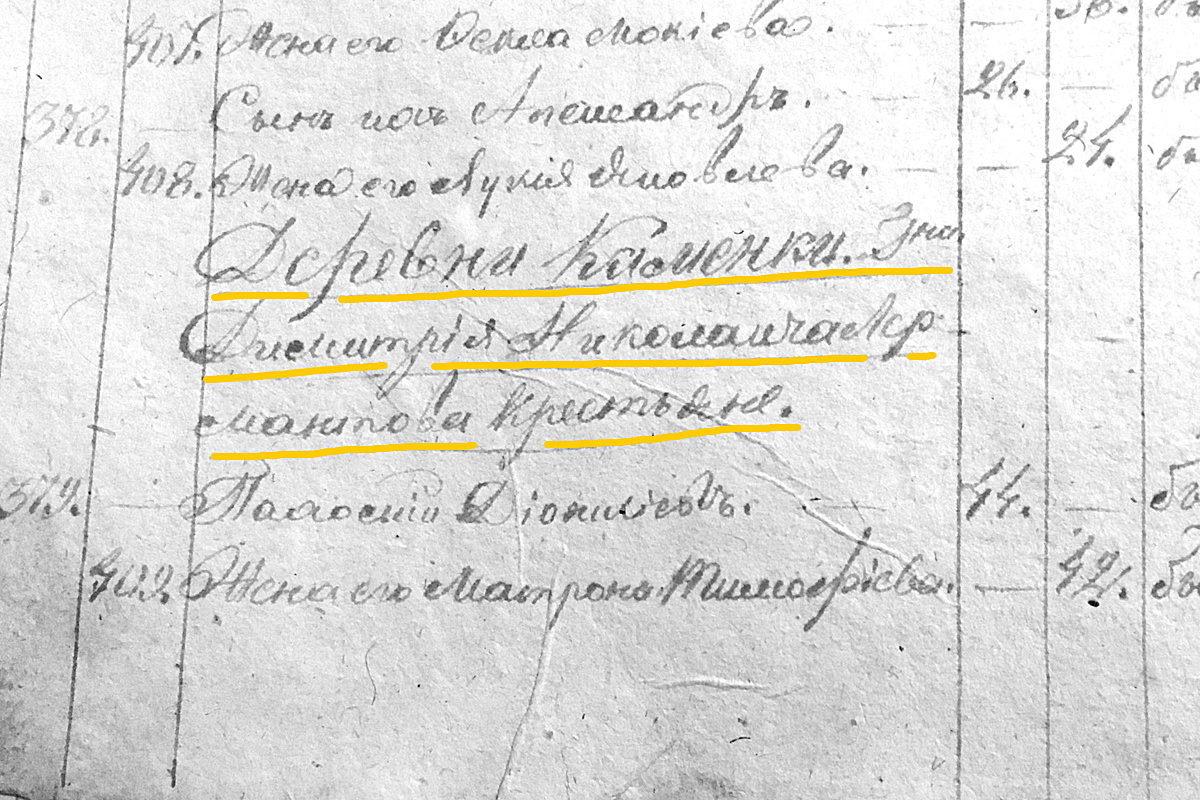 407. Жена его Ѳекла Мокіева. — 36.
378. — Сынъ ихъ Александръ. — 26. — бы
408. Жена его Лукія Яковлева. — — 24. бы
Деревни Каменки. Гна
Димитрія Николаича Лер
мантова крестьяне.
379. — Діонисіевъ. — 44. — бы
409. Жена его Матрона Тимофѣева. — 42. бы